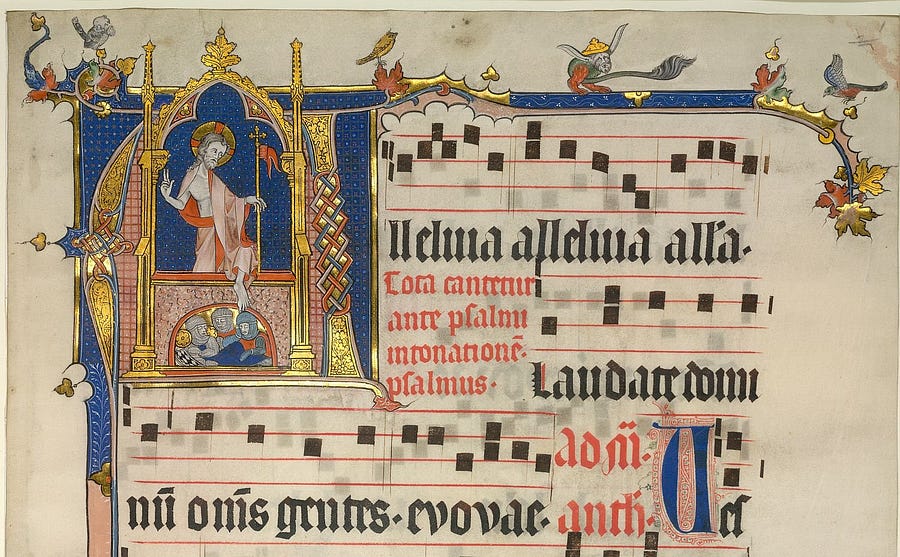 Alleluia alleluia alla.
Tota cantetur
ante psalmū
intonationē.
psalmus.
Laudate domi
ad m̄.
nū om̄s gentes. evovae.
anth. Ves